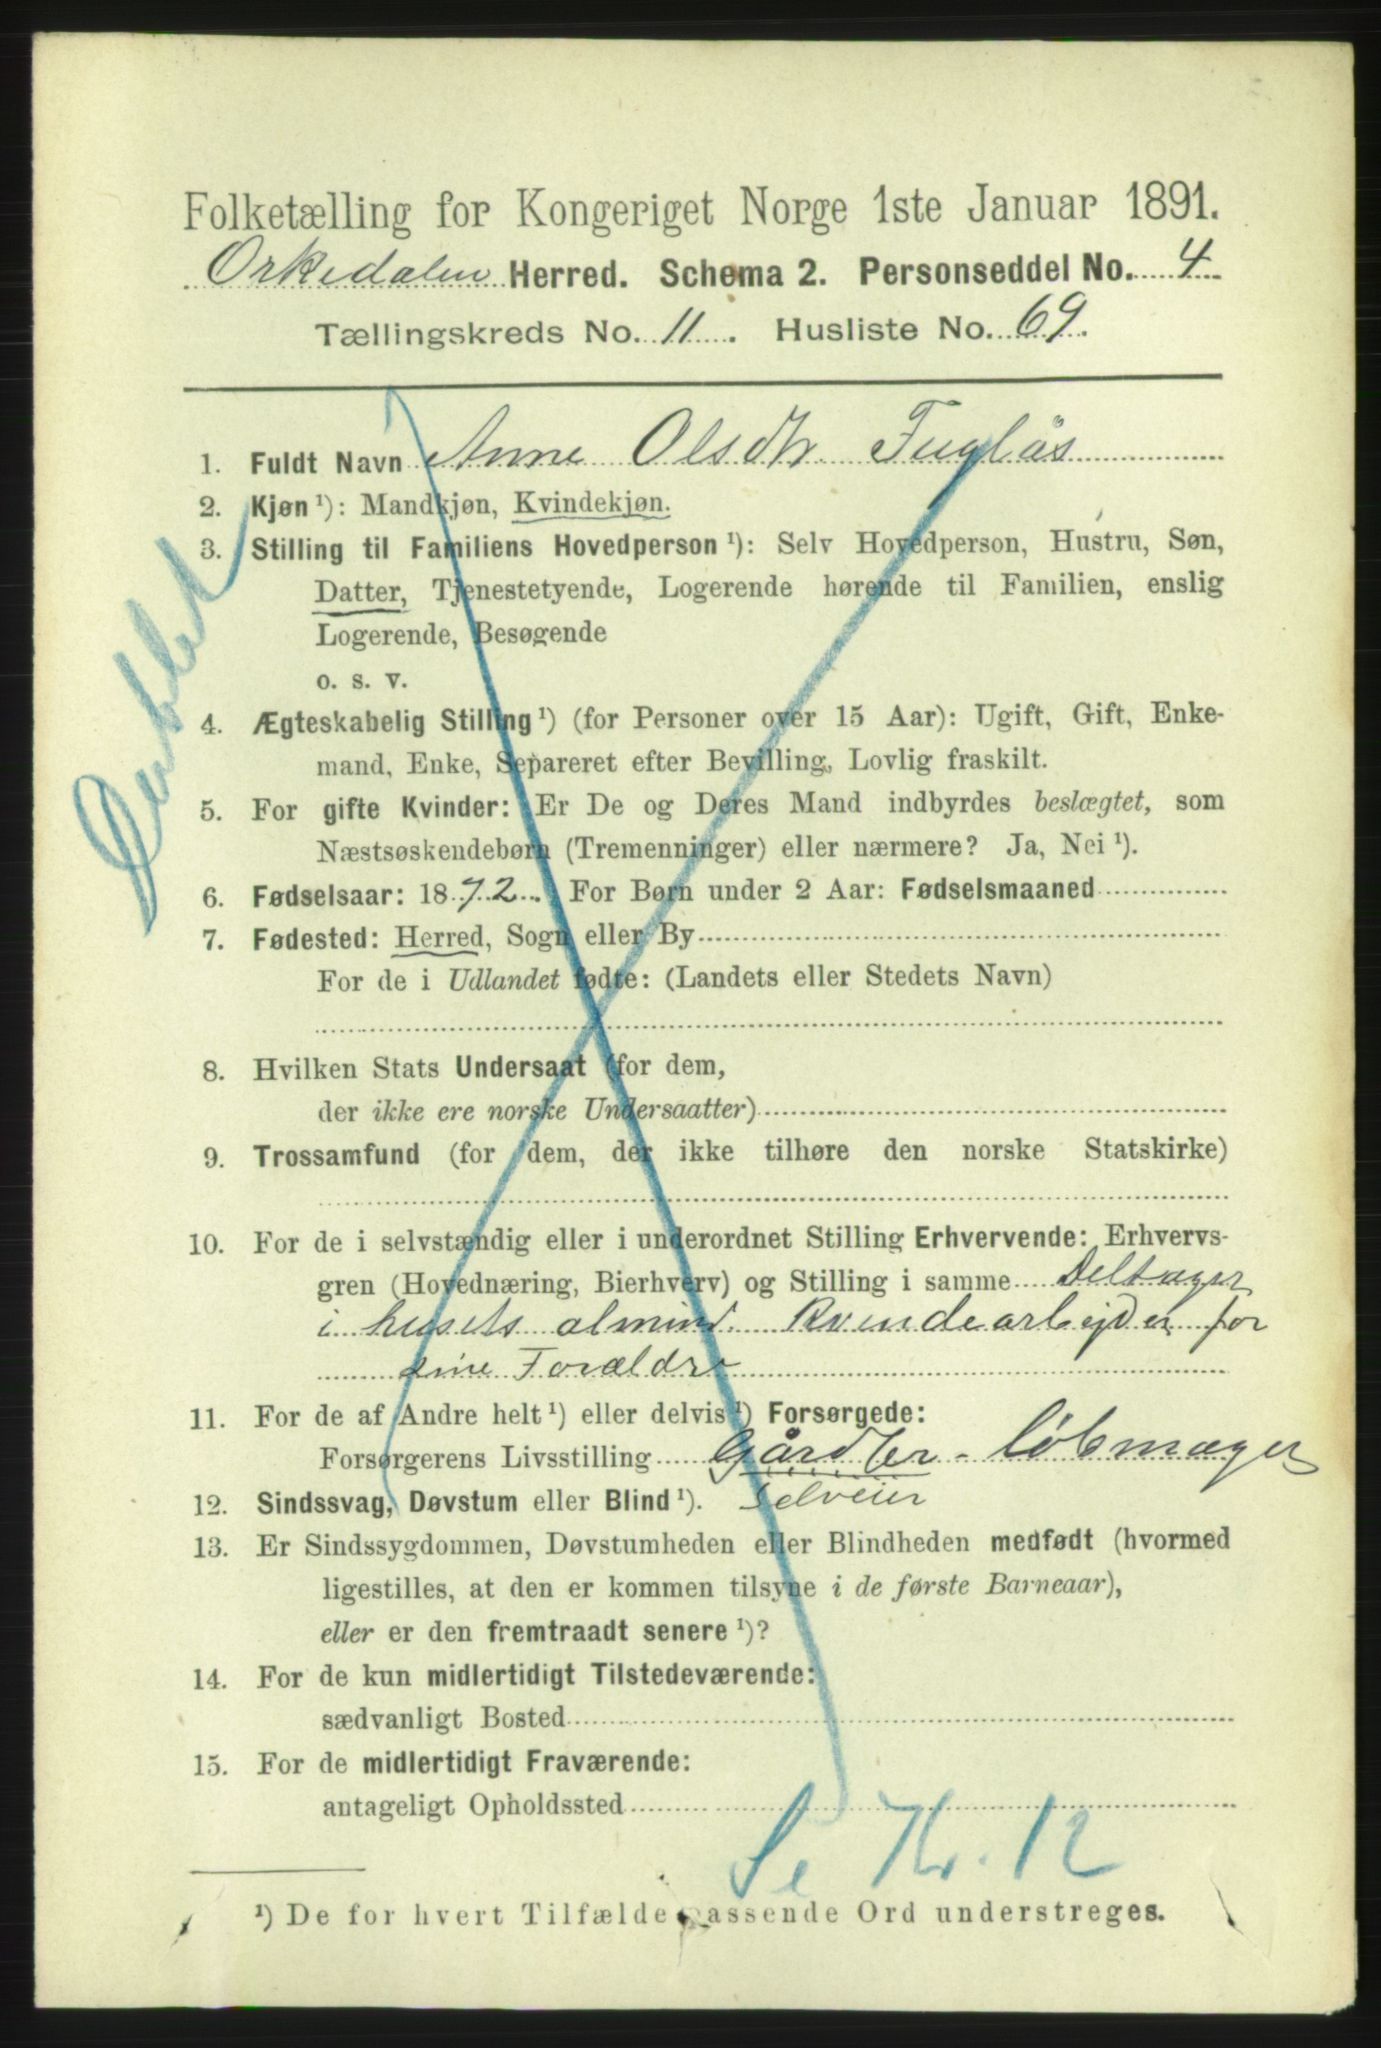 Folketælling for Kongeriget Norge 1ste Januar 1891.
Orkedalen Herred. Schema 2. Personseddel No. 4
Tællingskreds No. 11. Husliste No. 69.
1. Fuldt Navn Anne Olsdtr Fuglås
2. Kjøn ¹): Mandkjøn, Kvindekjøn.
3. Stilling til Familiens Hovedperson ¹): Selv Hovedperson, Hustru, Søn,
Datter, Tjenestetyende, Logerende hørende til Familien, enslig
Logerende, Besøgende
o. s. v.
Dublet
4. Ægteskabelig Stilling ¹) (for Personer over 15 Aar): Ugift, Gift, Enke-
mand, Enke, Separeret efter Bevilling, Lovlig fraskilt.
5. For gifte Kvinder: Er De og Deres Mand indbyrdes beslægtet, som
Næstsøskendebørn (Tremenninger) eller nærmere? Ja, Nei ¹).
6. Fødselsaar: 1872. For Børn under 2 Aar: Fødselsmaaned
7. Fødested: Herred, Sogn eller By
For de i Udlandet fødte: (Landets eller Stedets Navn)
8. Hvilken Stats Undersaat (for dem,
der ikke ere norske Undersaatter)
9. Trossamfund (for dem, der ikke tilhøre den norske Statskirke)
10. For de i selvstændig eller i underordnet Stilling Erhvervende: Erhvervs-
gren (Hovednæring, Bierhverv) og Stilling i samme Deltager
i husets almind. Kvindearbejder for
sine Forældre
11. For de af Andre helt ¹) eller delvis ¹) Forsørgede:
Forsørgerens Livsstilling Gårdbr - Löbmager
12. Sindssvag, Døvstum eller Blind ¹). Selveier
13. Er Sindssygdommen, Døvstumheden eller Blindheden medfødt (hvormed
ligestilles, at den er kommen tilsyne i de første Barneaar),
eller er den fremtraadt senere ¹)?
14. For de kun midlertidigt Tilstedeværende:
sædvanligt Bosted
15. For de midlertidigt Fraværende:
antageligt Opholdssted
Se Kr. 12
¹) De for hvert Tilfælde passende Ord understreges.